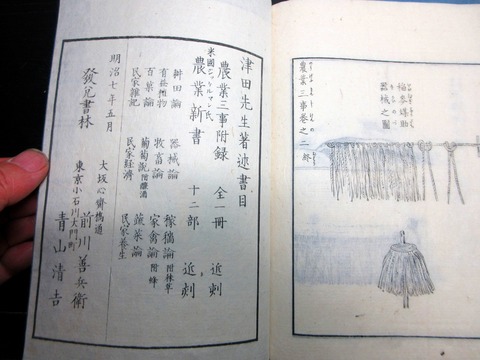 稲麥媒助
器械之圖
農業三事巻之二終
津田先生著述書目
農業三事附録 全一冊 近刻
米國 氏
農業新書 十二部 近刻
耕田論 器械論 稼穡論
有益植物 牧畜論 家禽論 附蜂
百菓論 葡萄説 附釀酒 蔬菜論
民家雜記 民家経済 民家養生
明治七年五月
發兌書林
大坂心齋橋通 前川善兵衛
東京小石川大門町 青山清吉